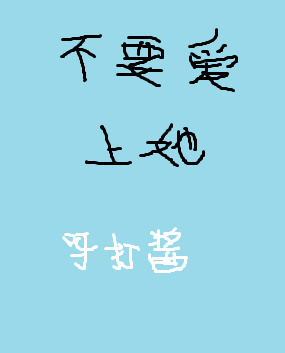 不要爱
上她
呀打酱